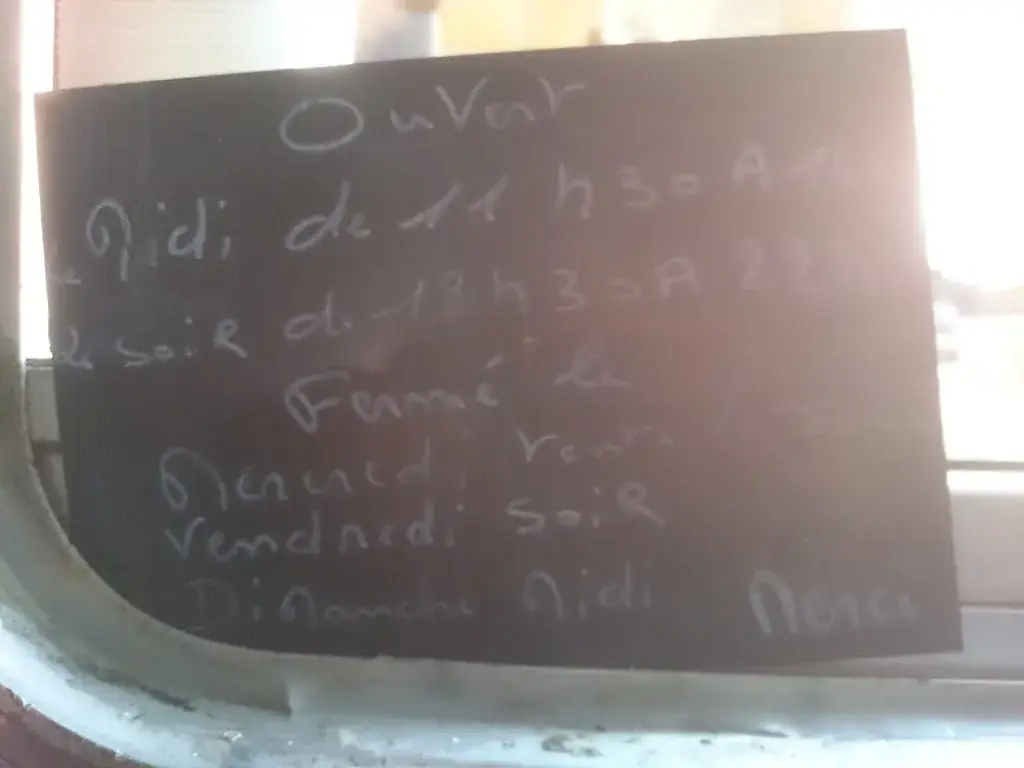 Ouvert
Le Midi de 11 h 30 A 14
Le soiR de 18 h 30 A 22 h
Fermé le
Mercredi
Vendredi soiR
DiManche Midi Merci